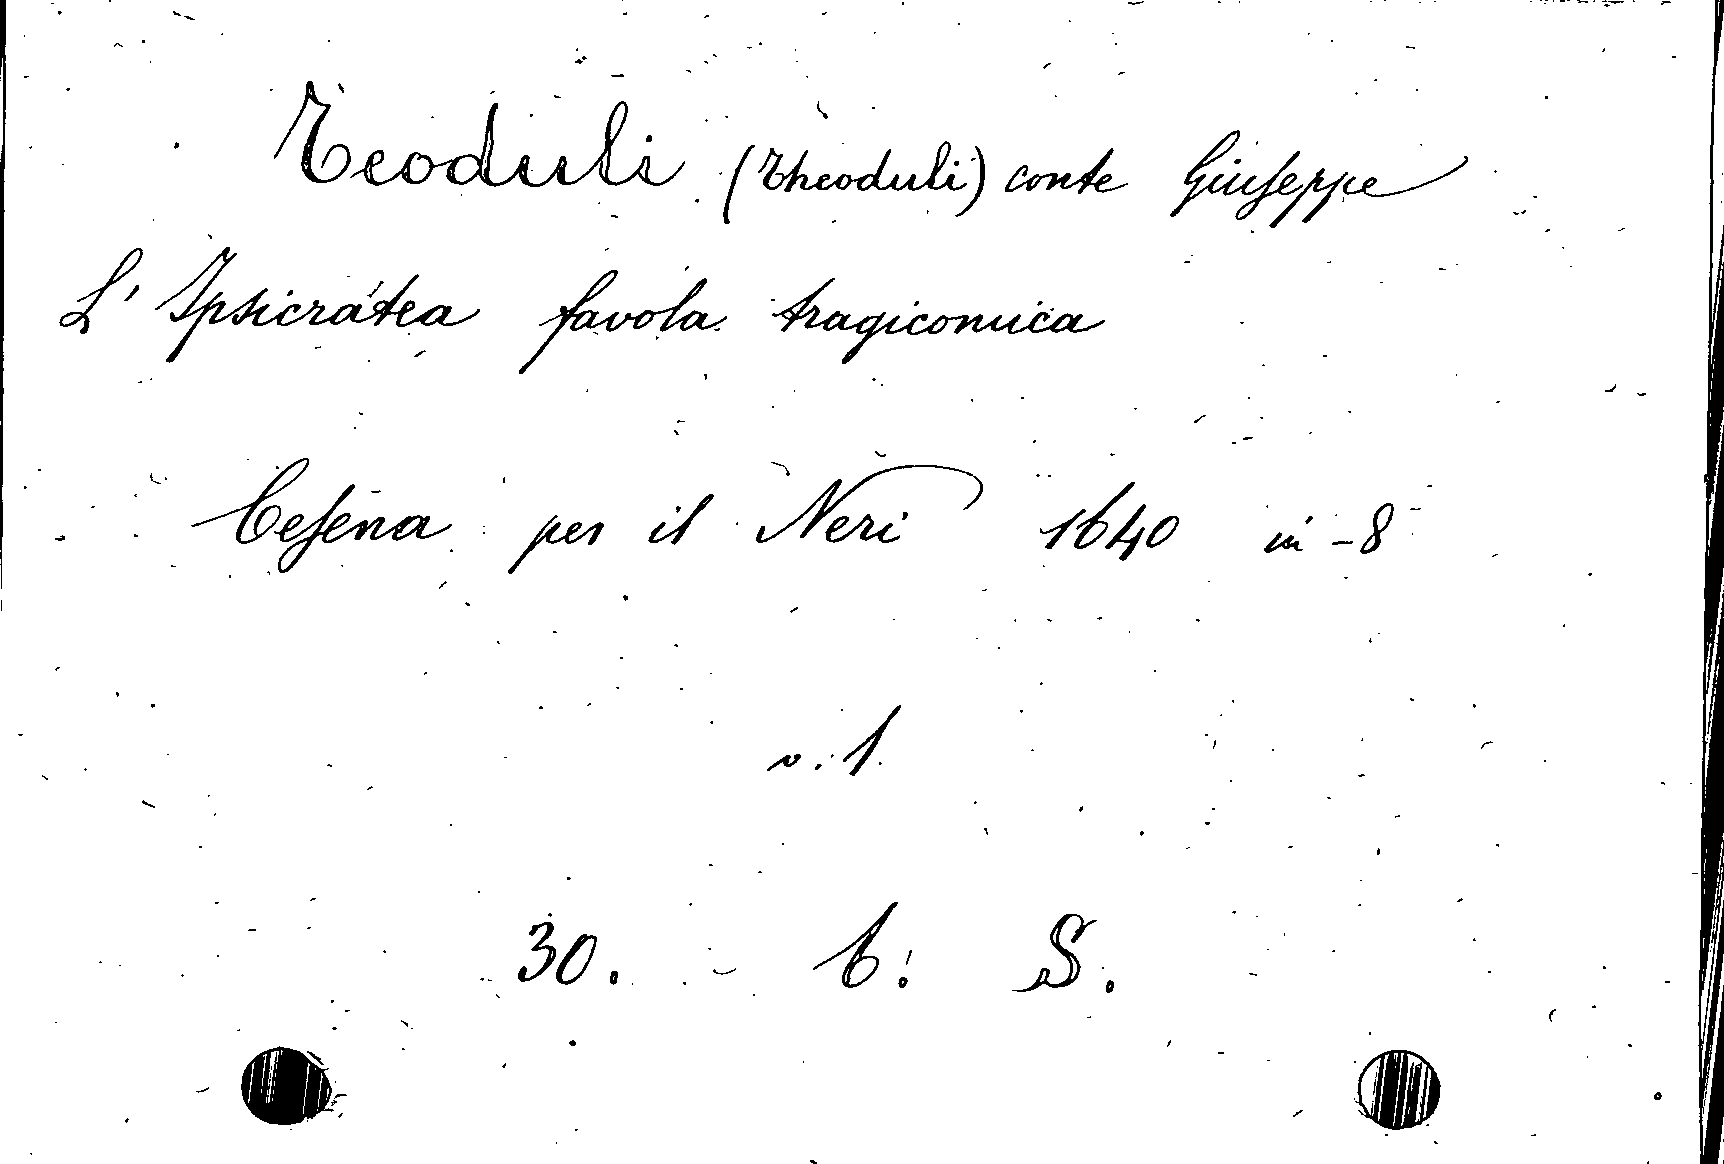 Teoduli (Theoduli) conte Giuseppe
L' Ipsicratea favola tragicomica
Cesena per il Neri 1640 in-8
v. 1.
30. 6. S.